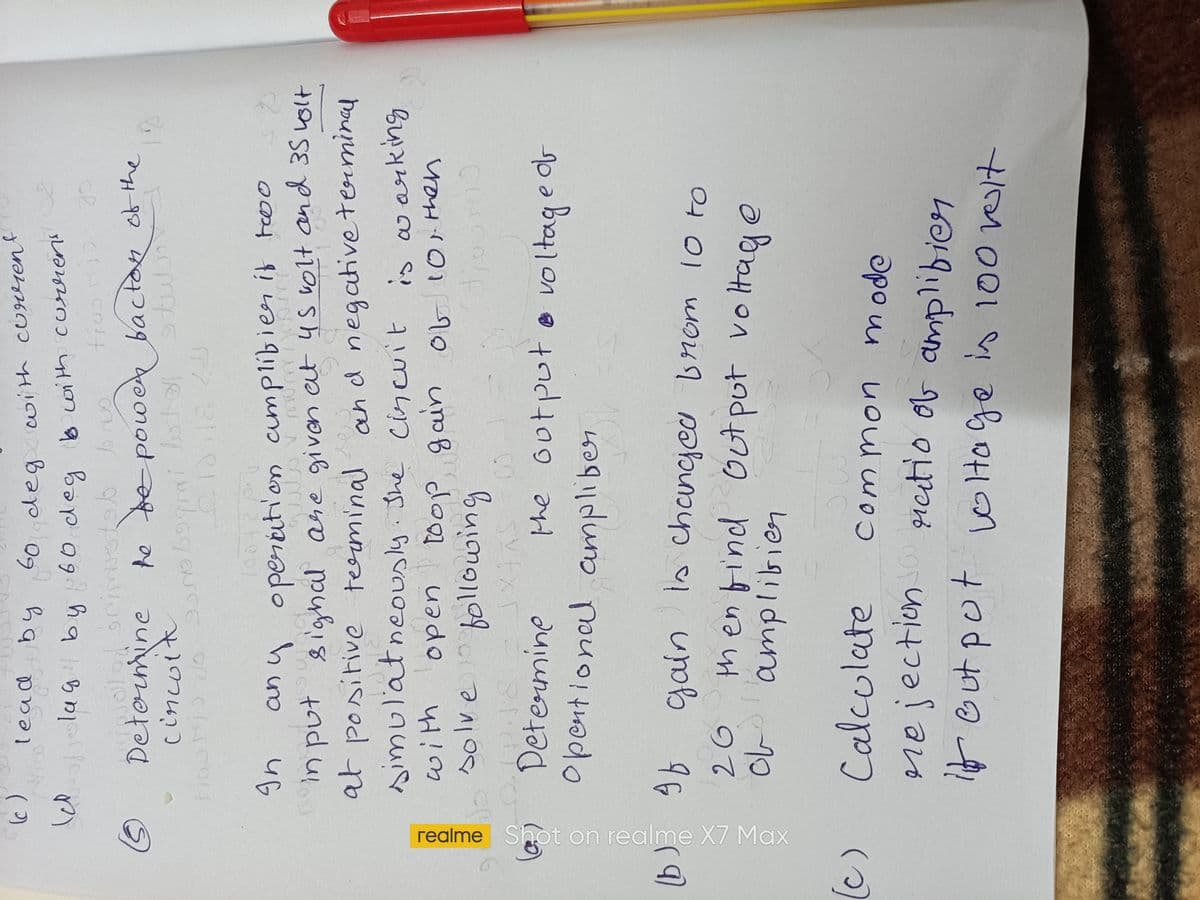 (c) lead by 60 deg with current
(d) lag by 60 deg with current
(5) Determine he be power factor of the
circuit
In any operation amplifier if two
input signal are given at 45 volt and 35 volt
at positive terminal and negative terminal
simulatneously. The circuit is working
with open loop gain of 10, then
solve following
(a) Determine the output voltage of
opertional amplifer
(b) If gain is changed from 10 to
20 then find output voltage
of amplifier
(c) Calculate common mode
rejection ratio of amplifier
if output voltage is 100 volt
realme Shot on realme X7 Max